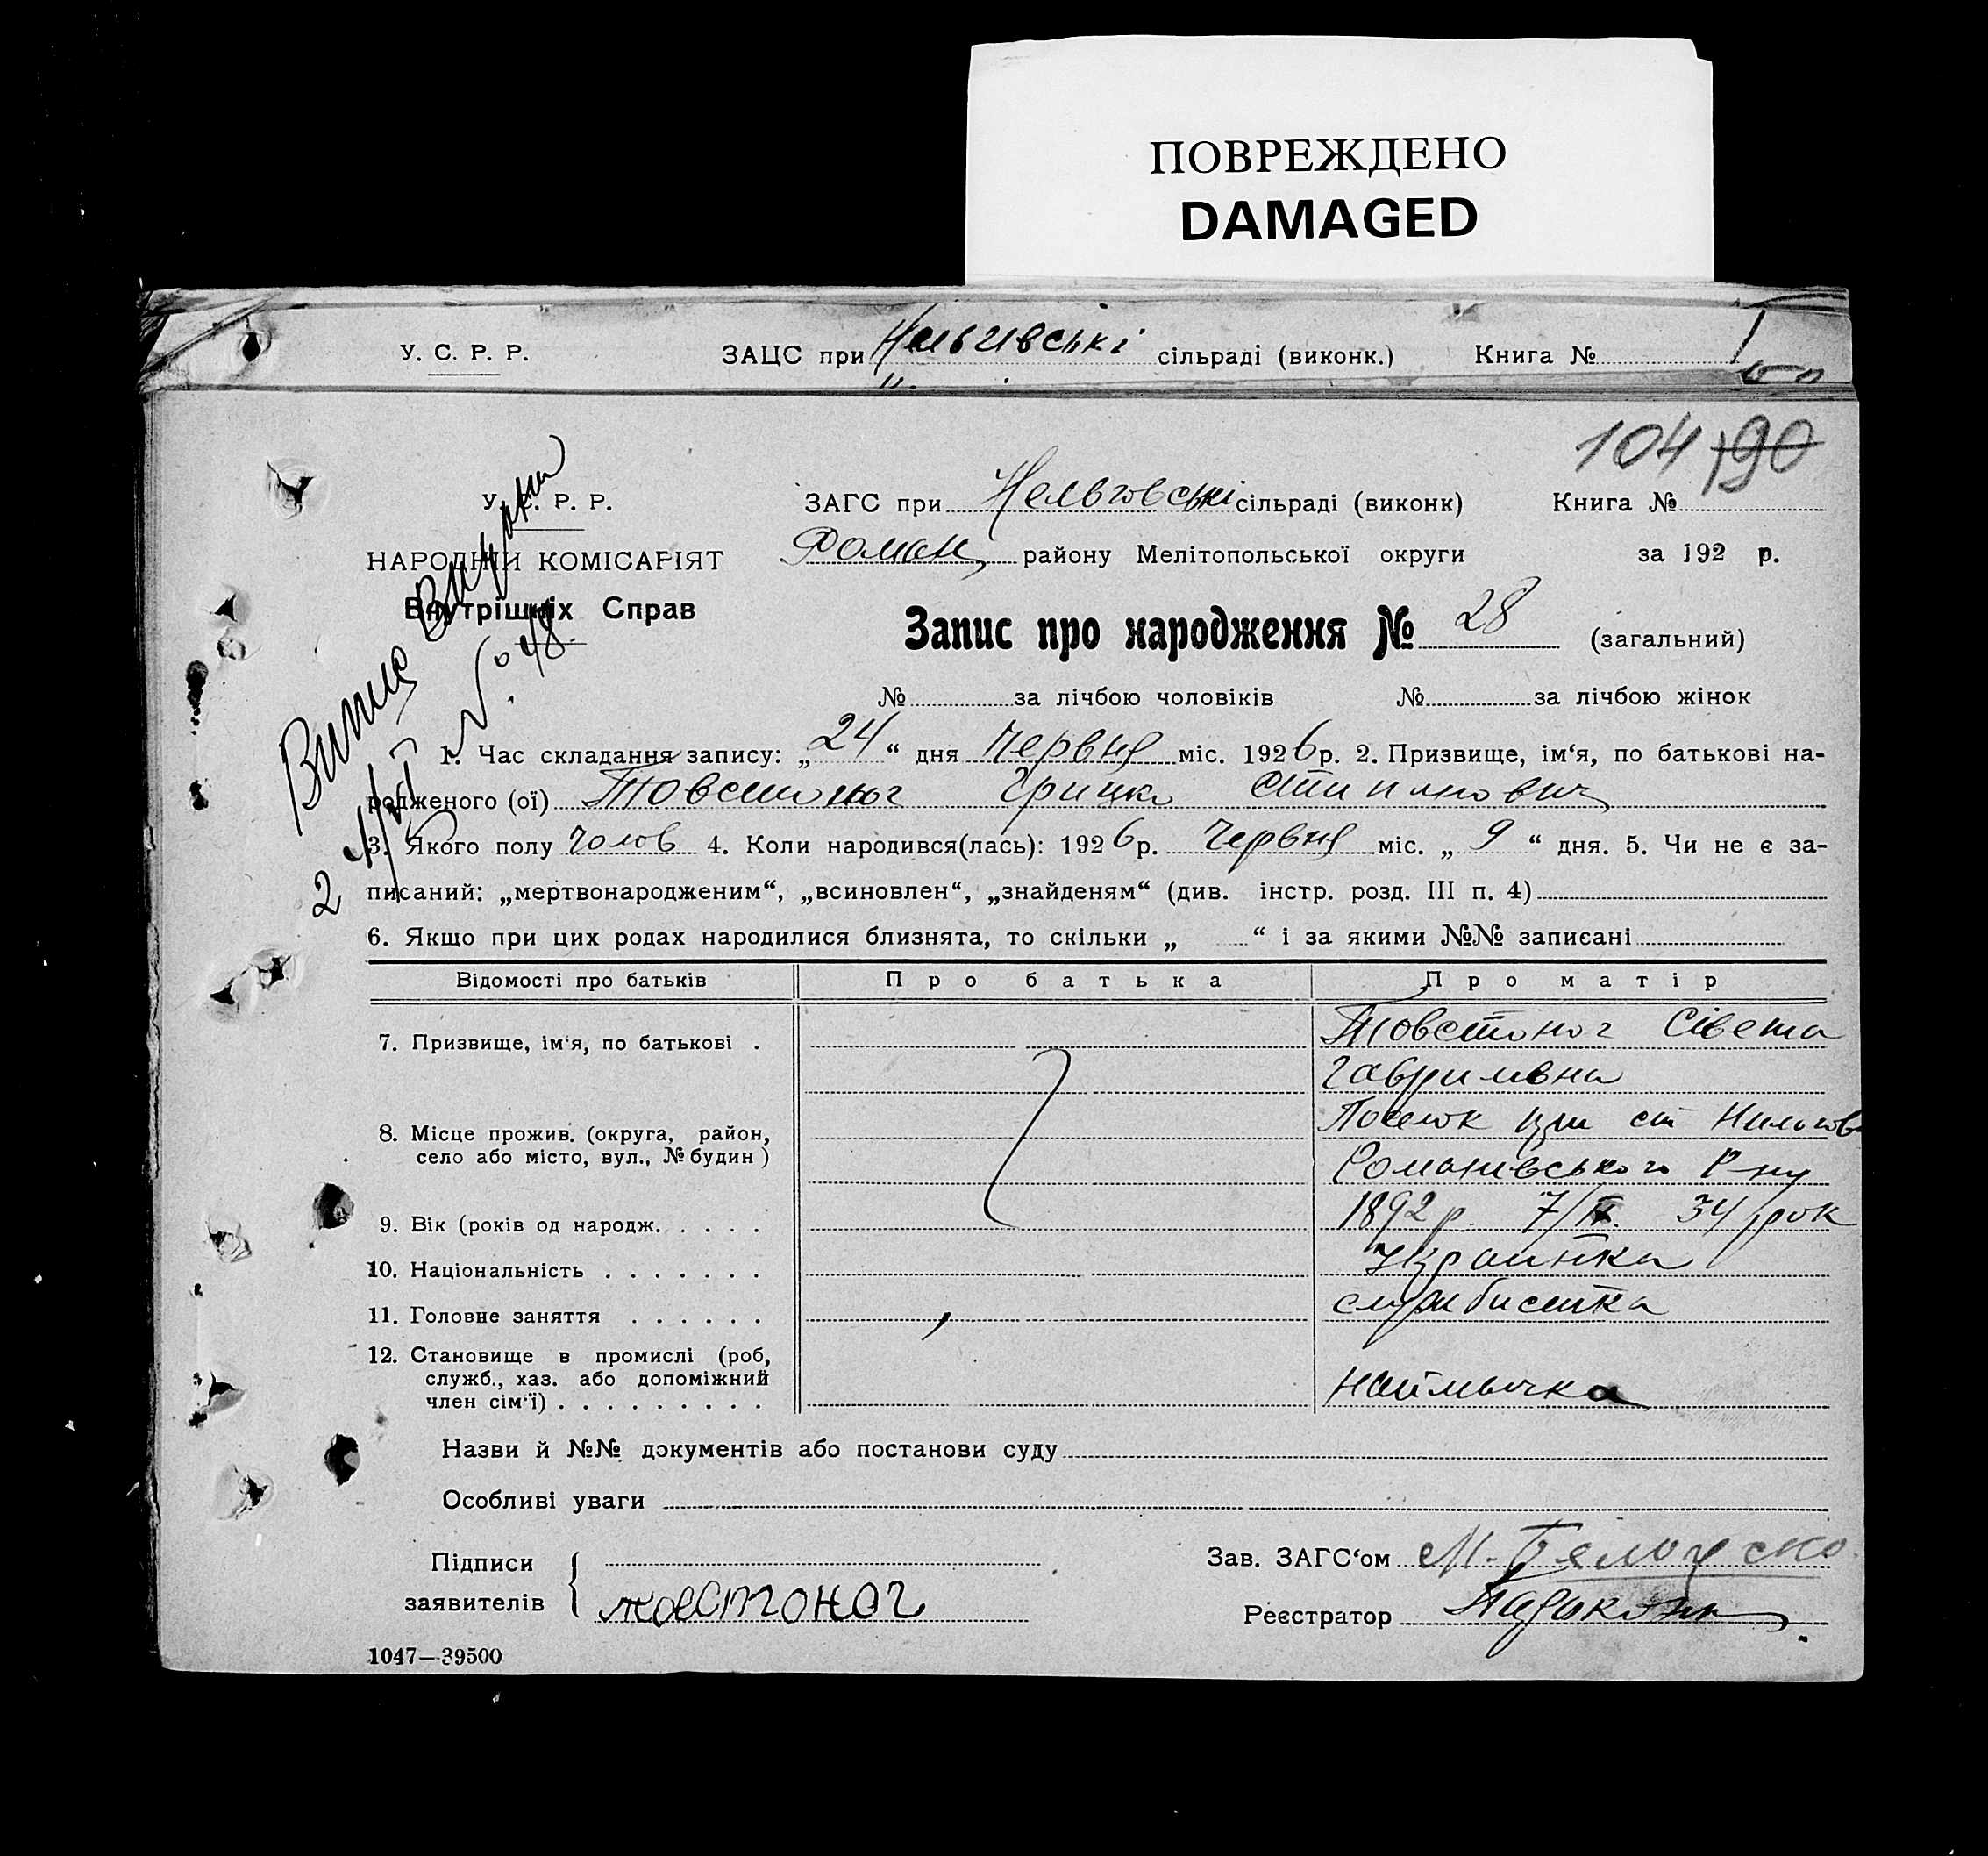 ПОВРЕЖДЕНО
DAMAGED
У. С. Р. Р. ЗАЦС при сільраді (виконк.) Книга №
104 190
У. С. Р. Р. ЗАГС при Нельговські сільраді (виконк) Книга №
НАРОДНІЙ КОМІСАРІЯТ Роман району Мелітопольської округи за 192 р.
Внутрішніх Справ
Запис про народження № 28 (загальний)
№ за лічбою чоловіків № за лічбою жінок
Випис видани
№ 48
1. Час складання запису: „24“ дня Червня міс. 1926 р. 2. Призвище, ім‘я, по батькові на-
родженого (ої) Товстоног Грицко Степанович
3. Якого полу чолов 4. Коли народився(лась): 1926 р. Червня міс. „9“ дня. 5. Чи не є за-
писаний: „мертвонародженим“, „всиновлен“, „знайденям“ (див. інстр. розд. III п. 4)
6. Якщо при цих родах народилися близнята, то скільки „ “ і за якими №№ записані
Відомості про батьків Про батька Про матір
7. Призвище, ім‘я, по батькові . Товстоног
Гаврилівна
8. Місце прожив. (округа, район, Поселок при ст Нильгов
село або місто, вул., № будин)
Романівського Р-ну
9. Вік (років од народж. . . . . 1892 р. 34 рок
10. Національність . . . . . . . Украинка
11. Головне заняття . . . . . . службистка
12. Становище в промислі (роб,
служб., хаз. або допоміжний наймычка
член сім‘ї) . . . . . . . . .
Назви й №№ документів або постанови суду
Особливі уваги
Підписи Зав. ЗАГС‘ом
заявителів товстоног Реєстратор
1047—39500